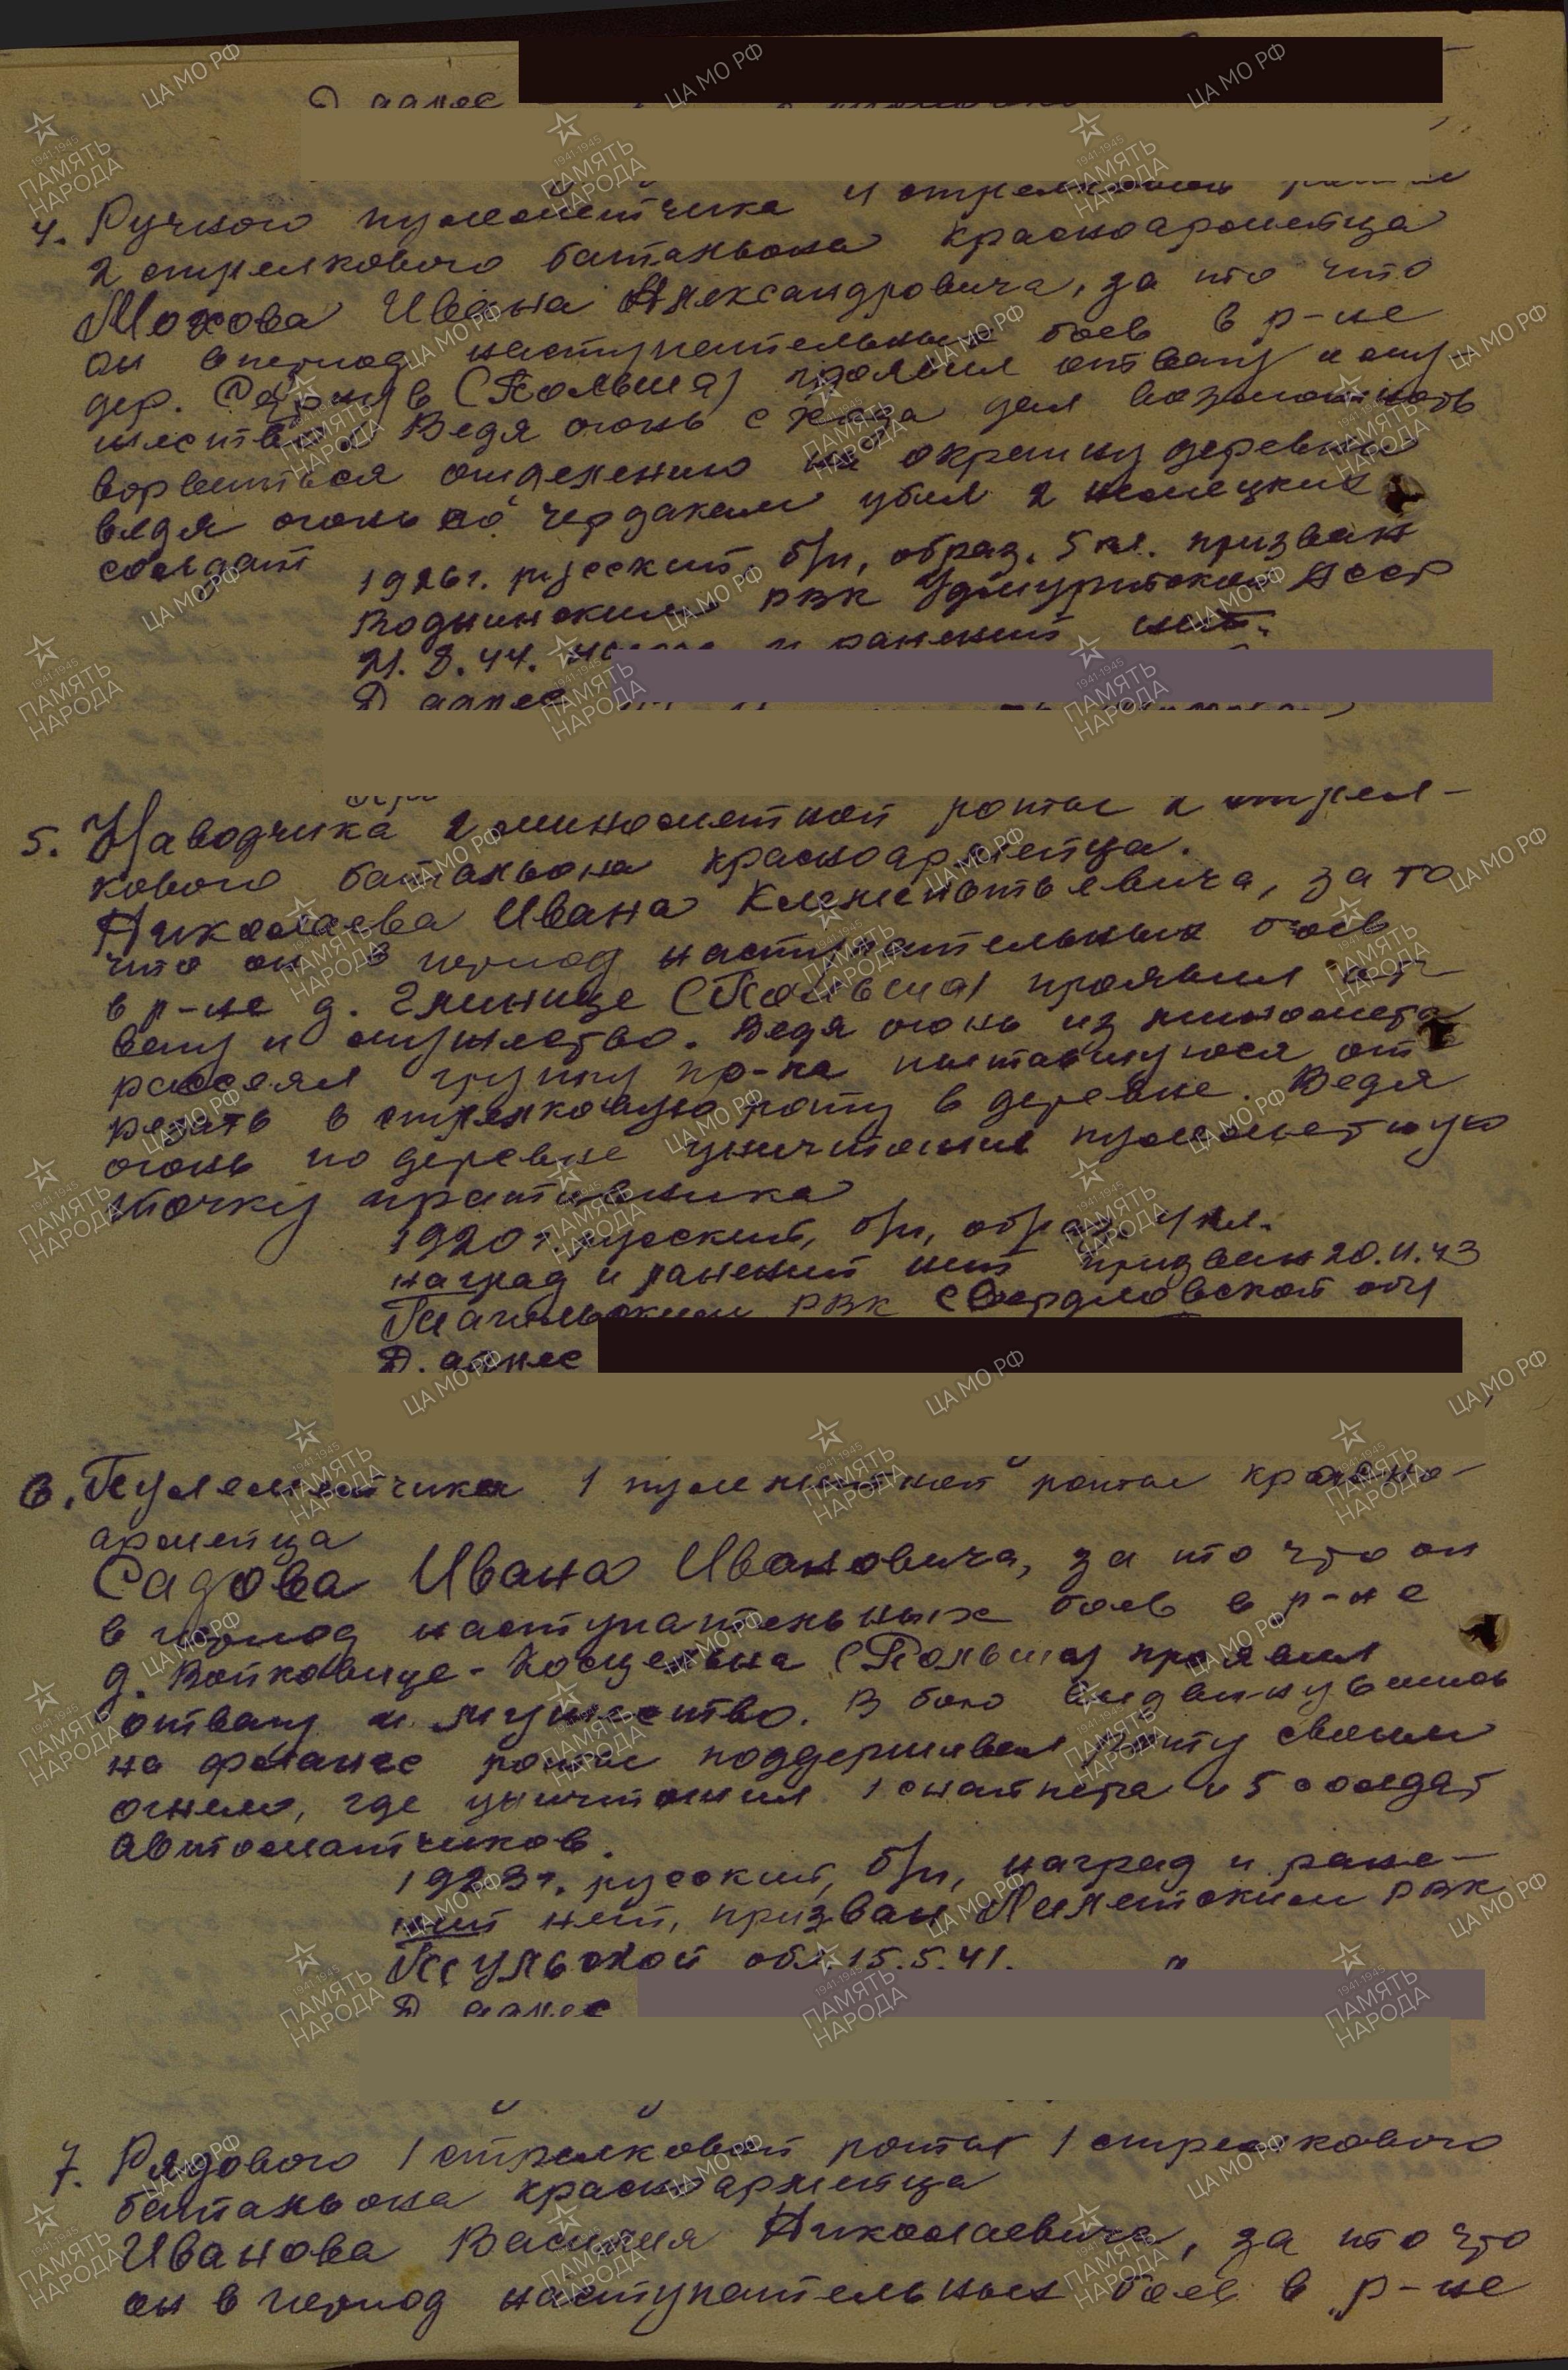 Д адрес
4. Ручного пулеметчика 4 стрелковой роты
2 стрелкового батальона красноармейца
Мохова Ивана Александровича, за то что
он в период наступательных боев в р-не
дер. (Польша) проявил отвагу и му
жество. Ведя огонь с хода дал возможность
ворваться отделению на окраину деревни
ведя огонь по чердакам убил 2 немецких
солдат
1926 г. русский, б/п, образ. 5 кл. призван
РВК Удмуртской АССР
21.8.44. наград и ранений нет.
Д адрес
5. Наводчика 2 минометной роты 2 стрел-
кового батальона красноармейца.
Николаева Ивана Клементьевича, за то
что он в период наступательных боев
в р-не д. Глинице (Польша) проявил от-
вагу и мужество. Ведя огонь из миномета
рассеял группу пр-ка пытавшуюся от
резать в стрелковую роту в деревне. Ведя
огонь по деревне уничтожил пулеметную
точку противника
1920 г. русский, б/п, образ. 4 кл.
наград и ранений нет призван 20.11.43
Тагильским РВК Свердловской обл
Д. адрес
6. Пулеметчика 1 пулеметной роты красно-
армейца
Садова Ивана Ивановича, за то что он
в период наступательных боев в р-не
д. Войковице-Косцельна (Польша) проявил
отвагу и мужество. В бою выдвинувшись
на фланге роты поддерживал роту своим
огнем, где уничтожил 1 снайпера и 5 солдат
автоматчиков.
1923 г. русский, б/п, наград и ране-
ний нет, призван РВК
Тульской обл. 15.5.41.
Д адрес
7. Рядового 1 стрелковой роты 1 стрелкового
батальона красноармейца
Иванова Василия Николаевича, за то что
он в период наступательных боев в р-не
ЦА МО РФ
1941-1945
ПАМЯТЬ
НАРОДА